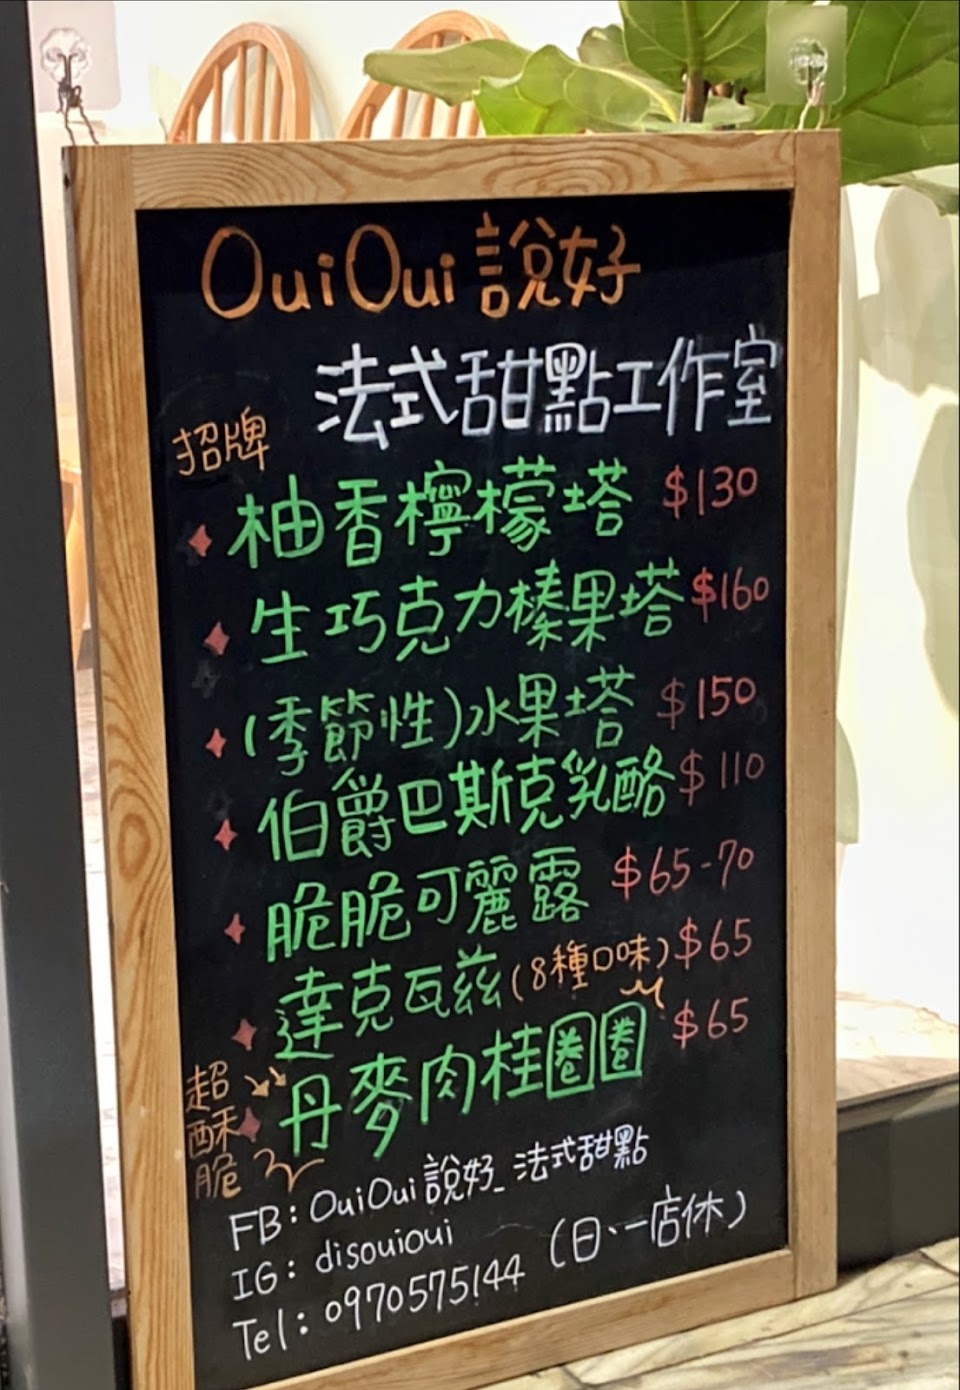 OuiOui 說好
法式甜點工作室
招牌
柚香檸檬塔 $130
生巧克力榛果塔 $160
(季節性)水果塔 $150
伯爵巴斯克乳酪 $110
脆脆可麗露 $65-70
達克瓦茲(8種口味) $65
丹麥肉桂圈圈 $65
超
酥
脆
FB: OuiOui 說好_法式甜點
IG: disouioui
(日、一店休)
Tel: 0970575144